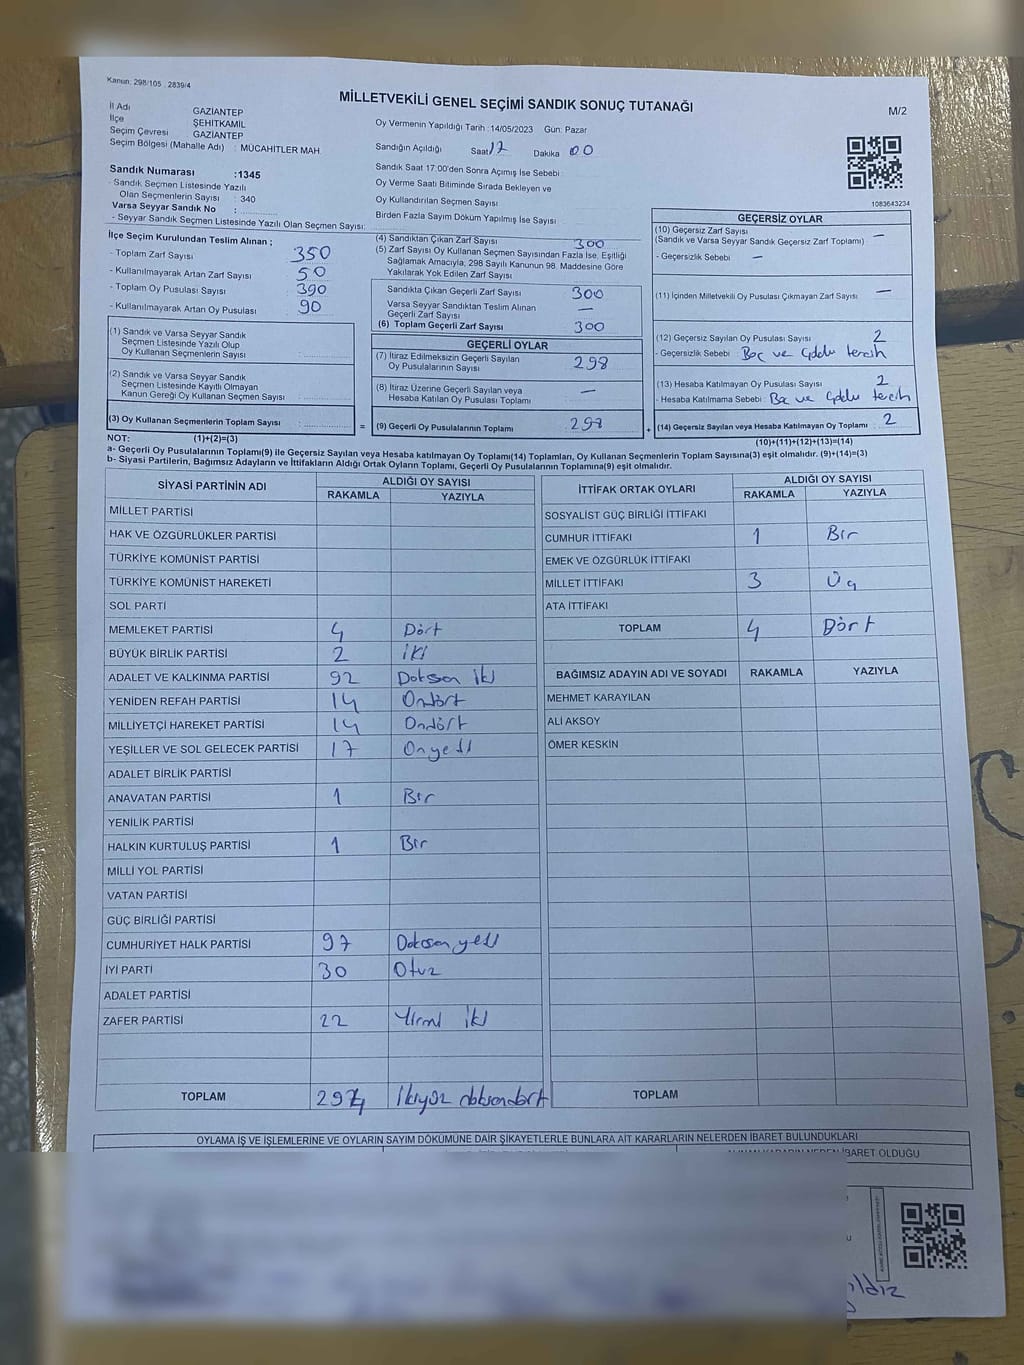 Kanun: 298/105 , 2839/4
MİLLETVEKİLİ GENEL SEÇİMİ SANDIK SONUÇ TUTANAĞI
M/2
İl Adı GAZİANTEP
İlçe ŞEHİTKAMİL
Seçim Çevresi GAZİANTEP
Seçim Bölgesi (Mahalle Adı) : MÜCAHİTLER MAH.
Sandık Numarası :1345
- Sandık Seçmen Listesinde Yazılı
Olan Seçmenlerin Sayısı : 340
Varsa Seyyar Sandık No :
- Seyyar Sandık Seçmen Listesinde Yazılı Olan Seçmen Sayısı:
Oy Vermenin Yapıldığı Tarih :14/05/2023 Gün: Pazar
Sandığın Açıldığı Saat 17 Dakika 00
Sandık Saat 17:00'den Sonra Açımış İse Sebebi
Oy Verme Saati Bitiminde Sırada Bekleyen ve
Oy Kullandırılan Seçmen Sayısı
Birden Fazla Sayım Döküm Yapılmış İse Sayısı
1083643234
İlçe Seçim Kurulundan Teslim Alınan ;
- Toplam Zarf Sayısı 350
- Kullanılmayarak Artan Zarf Sayısı 50
- Toplam Oy Pusulası Sayısı 390
- Kullanılmayarak Artan Oy Pusulası 90
(1) Sandık ve Varsa Seyyar Sandık
Seçmen Listesinde Yazılı Olup
Oy Kullanan Seçmenlerin Sayısı :
(2) Sandık ve Varsa Seyyar Sandık
Seçmen Listesinde Kayıtlı Olmayan
Kanun Gereği Oy Kullanan Seçmen Sayısı :
(3) Oy Kullanan Seçmenlerin Toplam Sayısı :
(4) Sandıktan Çıkan Zarf Sayısı 300
(5) Zarf Sayısı Oy Kullanan Seçmen Sayısından Fazla İse, Eşitliği
Sağlamak Amacıyla, 298 Sayılı Kanunun 98. Maddesine Göre
Yakılarak Yok Edilen Zarf Sayısı
Sandıkta Çıkan Geçerli Zarf Sayısı 300
Varsa Seyyar Sandıktan Teslim Alınan
Geçerli Zarf Sayısı —
(6) Toplam Geçerli Zarf Sayısı 300
GEÇERLİ OYLAR
(7) İtiraz Edilmeksizin Geçerli Sayılan
Oy Pusulalarının Sayısı 298
(8) İtiraz Üzerine Geçerli Sayılan veya
Hesaba Katılan Oy Pusulası Toplamı —
= (9) Geçerli Oy Pusulalarının Toplamı 298
GEÇERSİZ OYLAR
(10) Geçersiz Zarf Sayısı —
(Sandık ve Varsa Seyyar Sandık Geçersiz Zarf Toplamı)
- Geçersizlik Sebebi —
(11) İçinden Milletvekili Oy Pusulası Çıkmayan Zarf Sayısı —
(12) Geçersiz Sayılan Oy Pusulası Sayısı 2
- Geçersizlik Sebebi Boç ve çiddu tercih
(13) Hesaba Katılmayan Oy Pusulası Sayısı 2
- Hesaba Katılmama Sebebi Boç ve çiddu tercih
+ (14) Geçersiz Sayılan veya Hesaba Katılmayan Oy Toplamı 2
NOT: (1)+(2)=(3) (10)+(11)+(12)+(13)=(14)
a- Geçerli Oy Pusulalarının Toplamı(9) ile Geçersiz Sayılan veya Hesaba katılmayan Oy Toplamı(14) Toplamları, Oy Kullanan Seçmenlerin Toplam Sayısına(3) eşit olmalıdır. (9)+(14)=(3)
b- Siyasi Partilerin, Bağımsız Adayların ve İttifakların Aldığı Ortak Oyların Toplamı, Geçerli Oy Pusulalarının Toplamına(9) eşit olmalıdır.
SİYASİ PARTİNİN ADI ALDIĞI OY SAYISI
RAKAMLA YAZIYLA
MİLLET PARTİSİ
HAK VE ÖZGÜRLÜKLER PARTİSİ
TÜRKİYE KOMÜNİST PARTİSİ
TÜRKİYE KOMÜNİST HAREKETİ
SOL PARTİ
MEMLEKET PARTİSİ 4 Dört
BÜYÜK BİRLİK PARTİSİ 2 iki
ADALET VE KALKINMA PARTİSİ 92 Doksan iki
YENİDEN REFAH PARTİSİ 14 Ondört
MİLLİYETÇİ HAREKET PARTİSİ 14 Ondört
YEŞİLLER VE SOL GELECEK PARTİSİ 17 Onyedi
ADALET BİRLİK PARTİSİ
ANAVATAN PARTİSİ 1 Bir
YENİLİK PARTİSİ
HALKIN KURTULUŞ PARTİSİ 1 Bir
MİLLİ YOL PARTİSİ
VATAN PARTİSİ
GÜÇ BİRLİĞİ PARTİSİ
CUMHURİYET HALK PARTİSİ 97 Doksan yedi
İYİ PARTİ 30 Otuz
ADALET PARTİSİ
ZAFER PARTİSİ 22 Yirmi iki
TOPLAM 294 ikiyüz doksandört
İTTİFAK ORTAK OYLARI ALDIĞI OY SAYISI
RAKAMLA YAZIYLA
SOSYALİST GÜÇ BİRLİĞİ İTTİFAKI
CUMHUR İTTİFAKI 1 Bir
EMEK VE ÖZGÜRLÜK İTTİFAKI
MİLLET İTTİFAKI 3 Üç
ATA İTTİFAKI
TOPLAM 4 Dört
BAĞIMSIZ ADAYIN ADI VE SOYADI RAKAMLA YAZIYLA
MEHMET KARAYILAN
ALİ AKSOY
ÖMER KESKİN
TOPLAM
OYLAMA İŞ VE İŞLEMLERİNE VE OYLARIN SAYIM DÖKÜMÜNE DAİR ŞİKAYETLERLE BUNLARA AİT KARARLARIN NELERDEN İBARET BULUNDUKLARI
İBARET OLDUĞU
ıldız